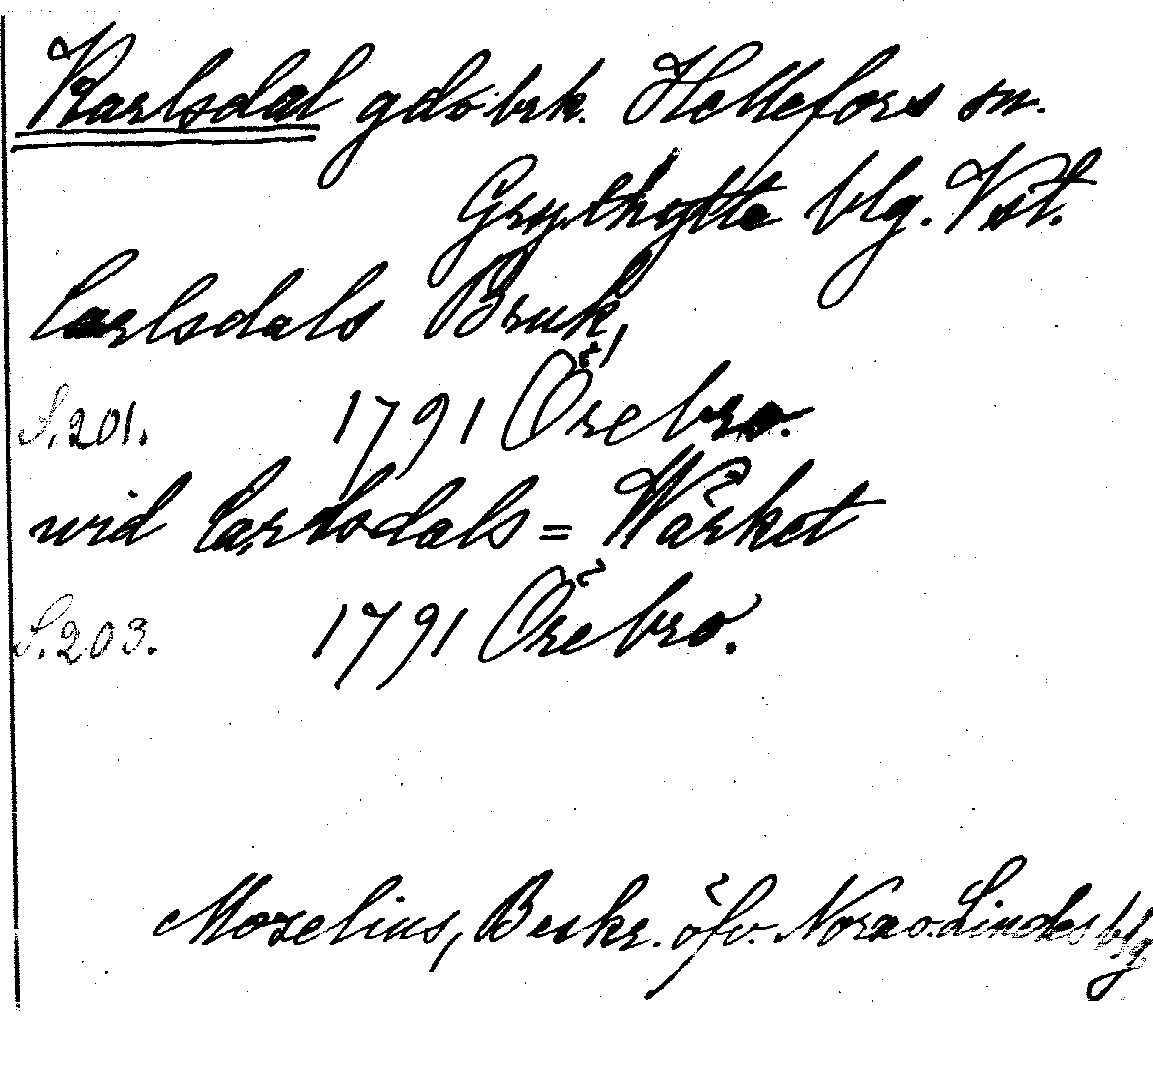 Karlsdal gd o. brk. Hellefors sn.
Grythytte blg. Vstl.
Carlsdals Bruk,
S. 201. 1791 Örebro.
wid Carlsdals = Wärket
S. 203. 1791 Örebro.
Moxelius, Beskr. öfv. Nora o. Lindes blg